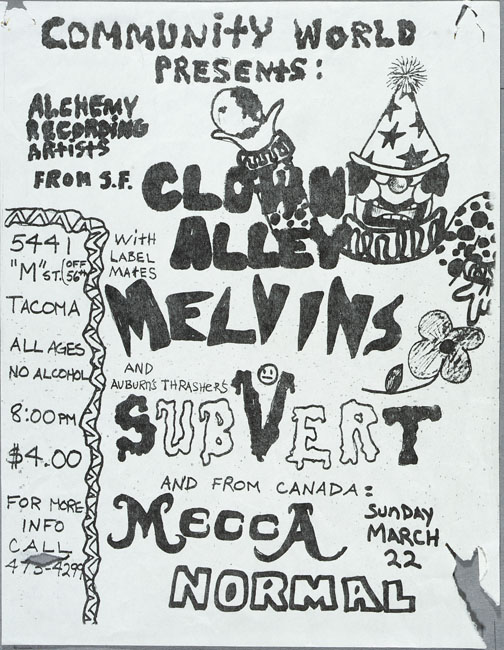 COMMUNITY WORLD
PRESENTS:
ALCHEMY
RECORDING
ARTISTS
FROM S.F.
CLOWN
ALLEY
WITH
LABEL
MATES
MELVINS
AND
AUBURN'S THRASHERS
SUBVERT
AND FROM CANADA:
MECCA
NORMAL
SUNDAY
MARCH
22
5441
"M" ST. (OFF 56TH)
TACOMA
ALL AGES
NO ALCOHOL
8:00 PM
$4.00
FOR MORE
INFO
CALL
475-4299